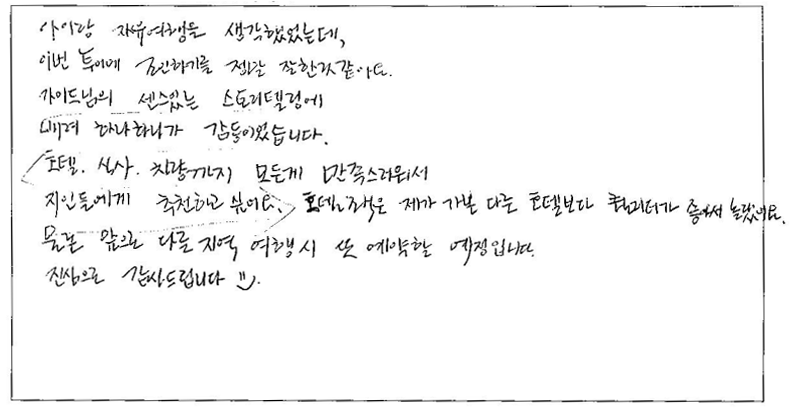 아이랑 자유여행을 생각했었는데,
이번 투어에 하기를 정말 잘한것같아요.
가이드님의 센스있는 스토리텔링에
배려 하나하나가 감동이었습니다.
호텔. 식사. 차량까지 모든게 만족스러워서
지인들에게 추천하고 싶어요. 호텔조식은 제가 가본 다른 호텔보다 퀄리티가 좋아서 놀랐어요.
물론 앞으로 다른지역 여행시 또 예약할 예정입니다.
진심으로 감사드립니다